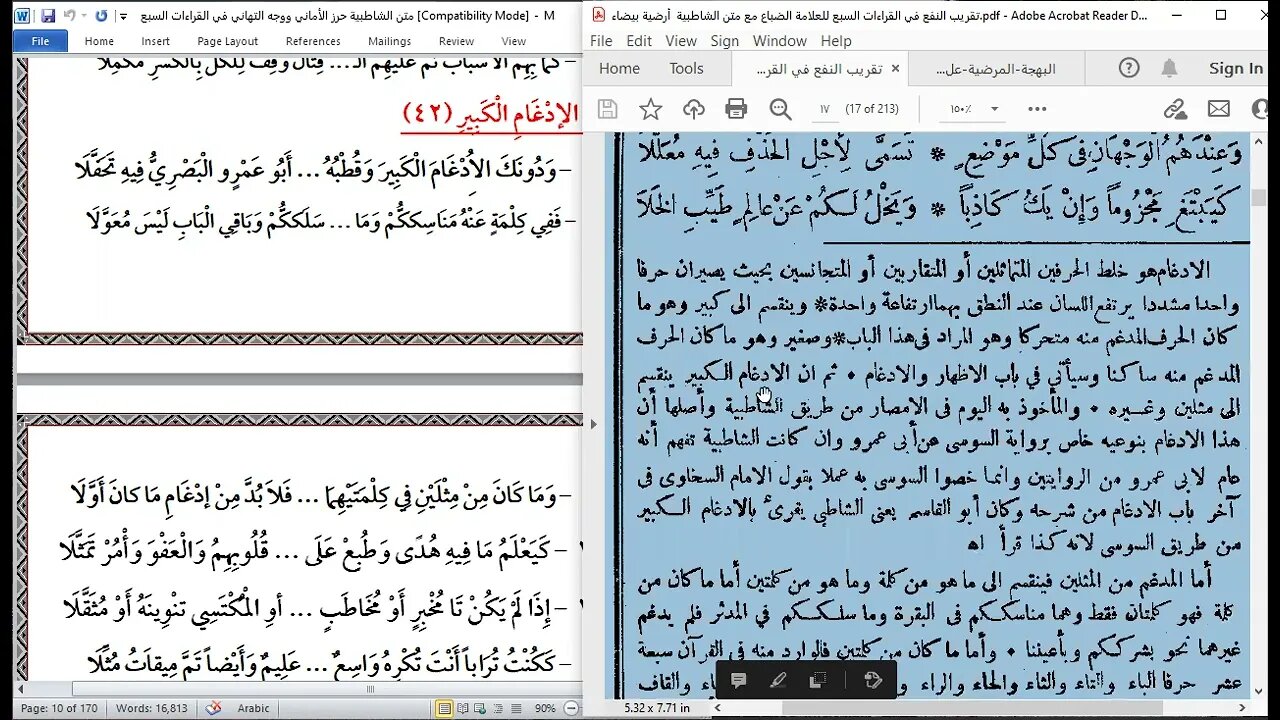 متن الشاطبية حرز الأماني ووجه التهاني في القراءات السبع [Compatibility Mode] - M
File Home Insert Page Layout References Mailings Review View
الإِدْغَامِ الْكَبِيرِ (٤٢)
– وَدُونَكَ الِادْغَامَ الْكَبِيرَ وَقُطْبُهُ ... أَبُو عَمْرٍو الْبَصْرِيُّ فِيهِ تَحَفَّلَا
– فَفِي كِلْمَةٍ عَنْهُ مَنَاسِكَكُّمْ وَمَا ... سَلَككُّمْ وَبَاقِي الْبَابِ لَيْسَ مُعَوَّلَا
– وَمَا كَانَ مِنْ مِثْلَيْنِ فِي كِلْمَتَيْهِمَا ... فَلَا بُدَّ مِنْ إِدْغَامِ مَا كانَ أَوَّلَا
كَيَعْلَمُ مَا فِيهِ هُدًى وَطُبِعْ عَلَى ... قُلُوبِهِمُ وَالْعَفْوَ وَأْمُرْ تَمَثَّلَا
إِذَا لَمْ يَكُنْ تَا مُخْبِرٍ أَوْ مُخَاطَبٍ ... أوِ الْمُكْتَسِي تَنْوِينَهُ أَوْ مُثَقَّلَا
– كَكُنْتُ تُرَاباً أَنْتَ تُكْرِهُ وَاسِعٌ ... عَلِيمٌ وَأَيْضاً تَمَّ مِيقاتُ مُثِّلَا
Page: 10 of 170 Words: 16,813 Arabic 90%
تقريب النفع في القراءات السبع للعلامة الضباع مع متن الشاطبية أرضية بيضاء.pdf - Adobe Acrobat Reader D...
File Edit View Sign Window Help
Home Tools تقريب النفع في القر... البهجة-المرضية-عل... Sign In
١٧ (17 of 213) ١٥٠٪
وَعِنْدَهُمُ الْوَجْهَانِ فِي كُلِّ مَوْضِعٍ * تَسَمَّى لِأَجْلِ الْحَذْفِ فِيهِ مُعَلَّلَا
كَيَبْتَغِ مَجْزُوماً وَإِنْ يَكُ كَاذِباً * وَيَخْلُ لَكُمْ عَنْ عَالِمٍ طَيِّبِ الْخَلَا
الادغام هو خلط الحرفين المتماثلين أو المتقاربين أو المتجانسين بحيث يصيران حرفا
واحدا مشددا يرتفع اللسان عند النطق بهما ارتفاعة واحدة * وينقسم الى كبير وهو ما
كان الحرف المدغم منه متحركا وهو المراد فى هذا الباب * وصغير وهو ما كان الحرف
المدغم منه ساكنا وسيأتي في باب الاظهار والادغام • ثم ان الادغام الكبير ينقسم
الى مثلين وغيره • والمأخوذ به اليوم فى الامصار من طريق الشاطبية وأصلها أن
هذا الادغام بنوعيه خاص برواية السوسى عن أبى عمرو وان كانت الشاطبية تفهم أنه
عام لابى عمرو من الروايتين وانما خصوا السوسى به عملا بقول الامام السخاوى فى
آخر باب الادغام من شرحه وكان أبو القاسم يعنى الشاطبي يقرئ بالادغام الكبير
من طريق السوسى لانه كذا قرأ اه
أما المدغم من المثلين فينقسم الى ما هو من كلمة وما هو من كلمتين أما ما كان من
كلمة فهو كلمتان فقط وهما مناسككم فى البقرة وما سلككم في المدثر فلم يدغم
غيرهما نحو بشرككم وبأعيننا • وأما ما كان من كلمتين فالوارد منه فى القرآن سبعة
عشر حرفا الباء والتاء والثاء والحاء والراء والقاف
5.32 x 7.71 in